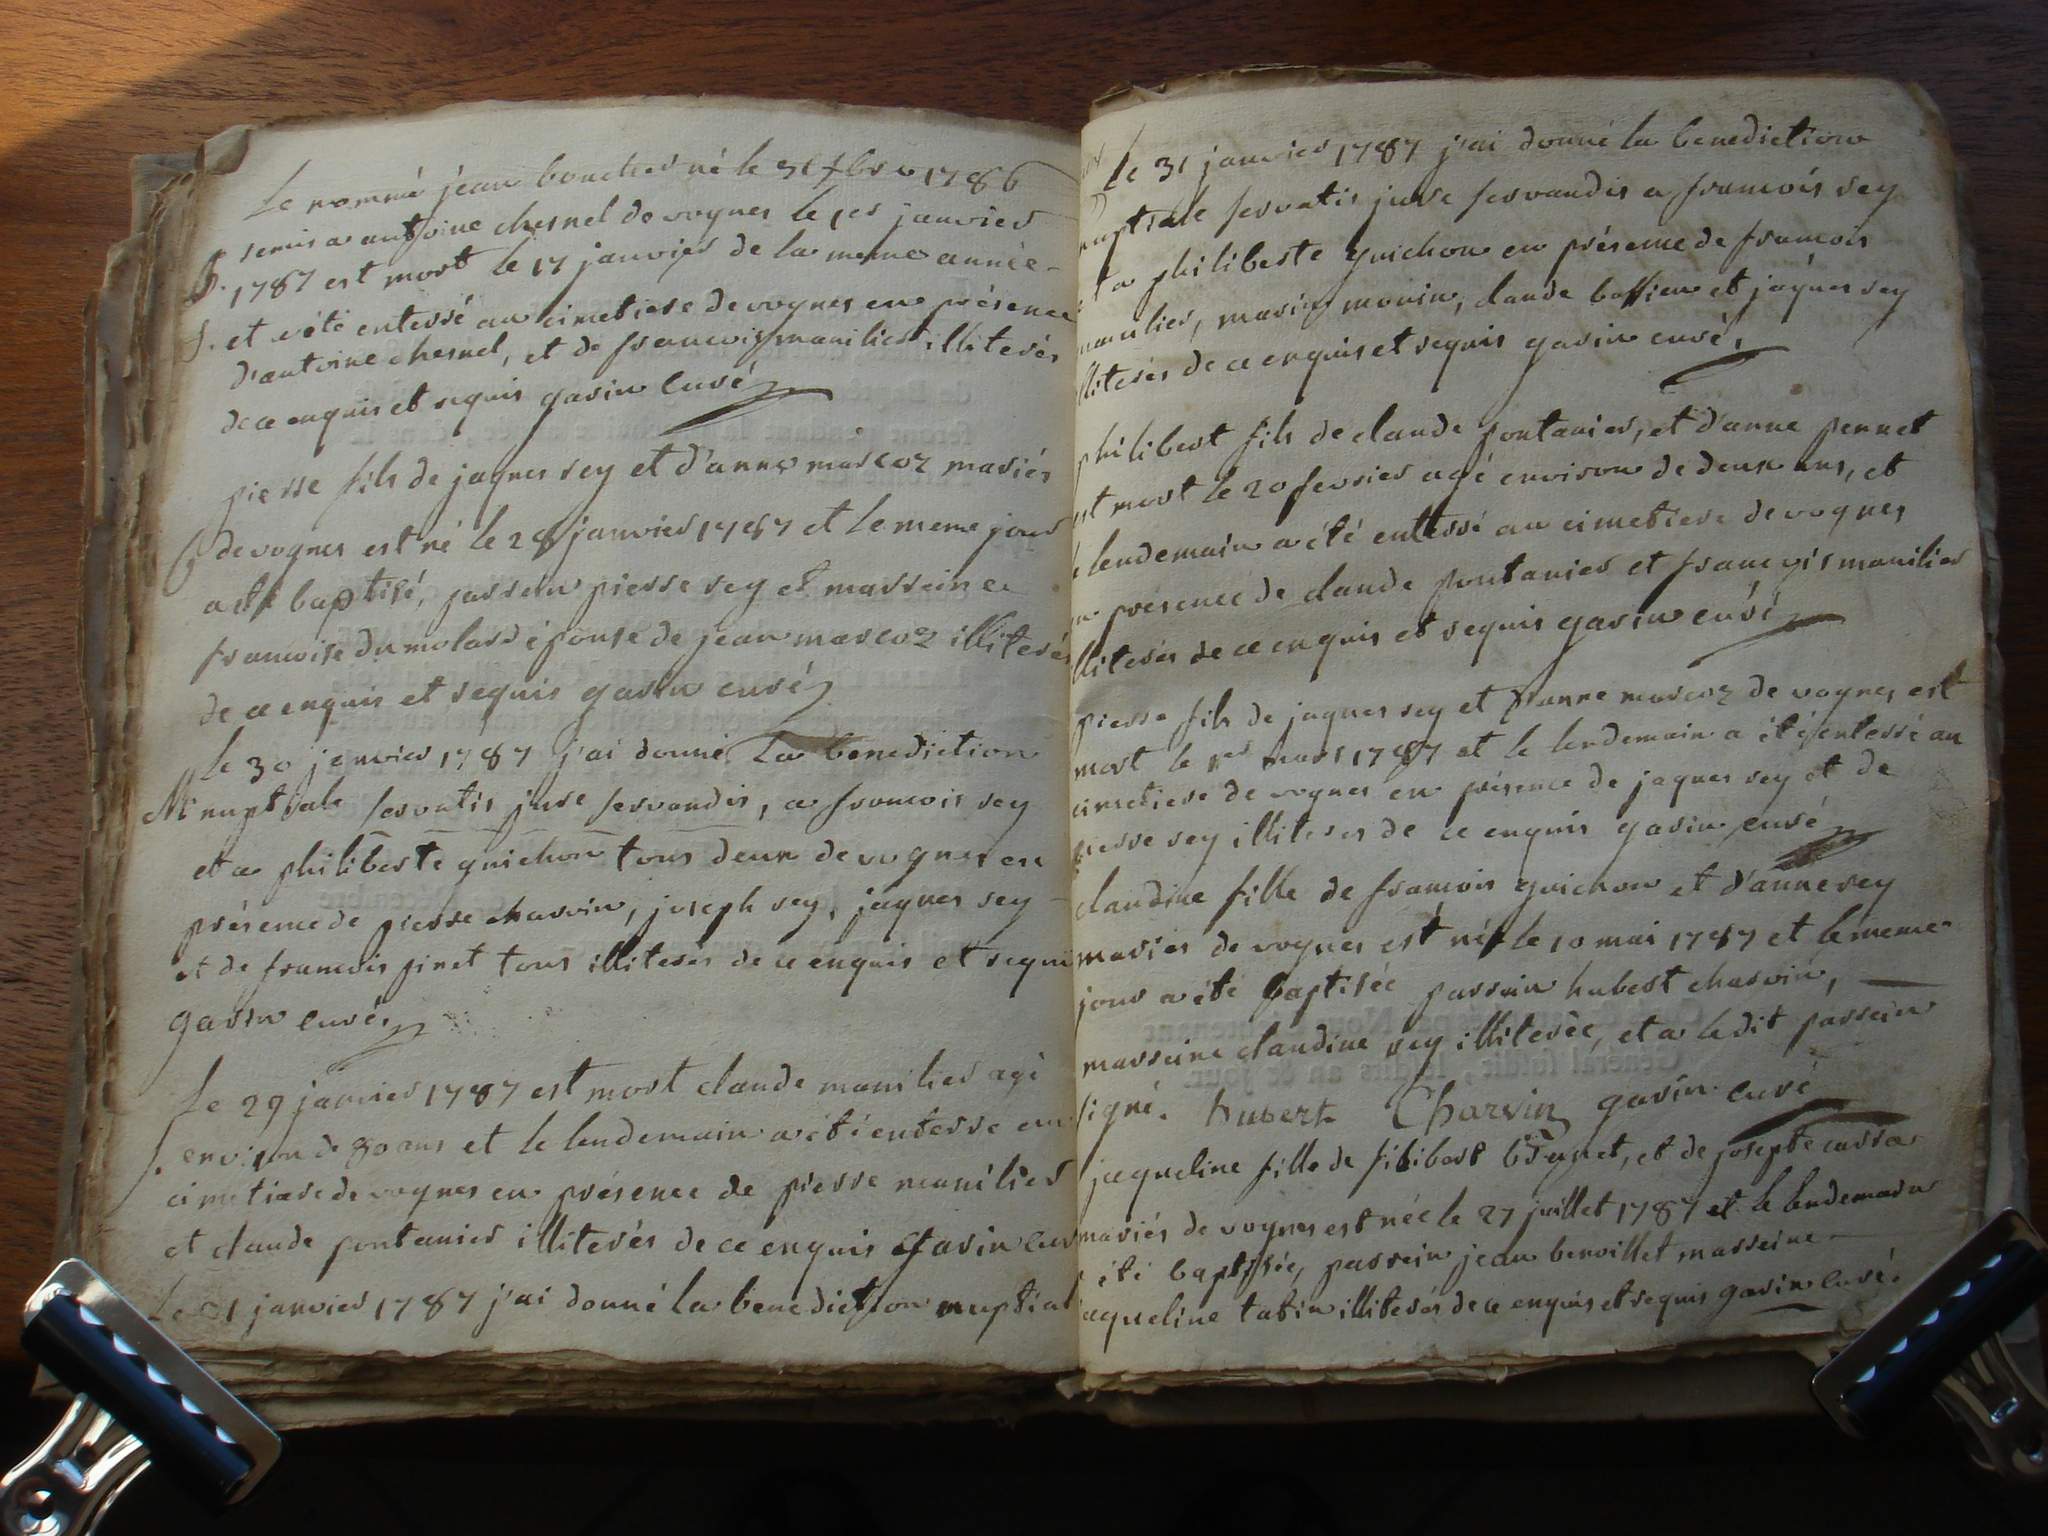 Le nommé jean boucher né le 1786
remis a antoine chesnel de vognes le 1er janvier
1787 est mort le 17 janvier de la meme année
S. et a été enterré au cimetiere de vognes en présence
d'antoine chesnel, et de francois manilier illiterés
de ce enquis et requis gavin curé
pierre fils de jaques rey et d'anne marcoz mariés
de vognes est né le 28 janvier 1787 et le meme jour
a été baptisé, parrein pierre rey et marreine
francoise du molard épouse de jean marcoz illiterés
de ce enquis et requis gavin curé
le 30 janvier 1787 j'ai donné la benediction
M nuptiale servatis jure servandis, a francois rey
et a philiberte guichon tous deux de vognes en
présence de pierre charvin, joseph rey, jaques rey
et de francois pinet tous illiterés de ce enquis et requis
gavin curé
Le 29 janvier 1787 est mort claude manilier agé
S. environ de 80 ans et le lendemain a été enterre au
cimetiere de vognes en présence de pierre manilier
et claude pontanier illiterés de ce enquis gavin curé
Le 31 janvier 1787 j'ai donné la benediction nuptial
Le 31 janvier 1787 j'ai donné la benediction
nuptiale servatis jure servandis a francois rey
et a philiberte guichon en présence de francois
manilier, marin monin, claude bassieu et jaques rey
illiterés de ce enquis et requis gavin curé,
philibert fils de claude pontanier, et d'anne pernet
est mort le 20 fevrier agé environ de deux ans, et
le lendemain a été enterré au cimetiere de vognes
en présence de claude pontanier et francois manilier
illiterés de ce enquis et requis gavin curé
pierre fils de jaques rey et d'anne marcoz de vognes est
mort le 1er mars 1787 et le lendemain a été enterré au
cimetiere de vognes en présence de jaques rey et de
pierre rey illiterés de ce enquis gavin curé
claudine fille de francois guichon et d'anne rey
mariés de vognes est née le 10 mai 1787 et le meme
jour a été baptisée parrein hubert charvin,
marreine claudine rey illiterée, et a le dit parrein
signé. hubert Charvin gavin curé
jaqueline fille de filibert brunet, et de josepte
mariés de vognes est née le 27 juillet 1787 et le lendemain
été baptisée, parrein jean benoillet marreine
jaqueline tatin illiterés de ce enquis et requis gavin curé.